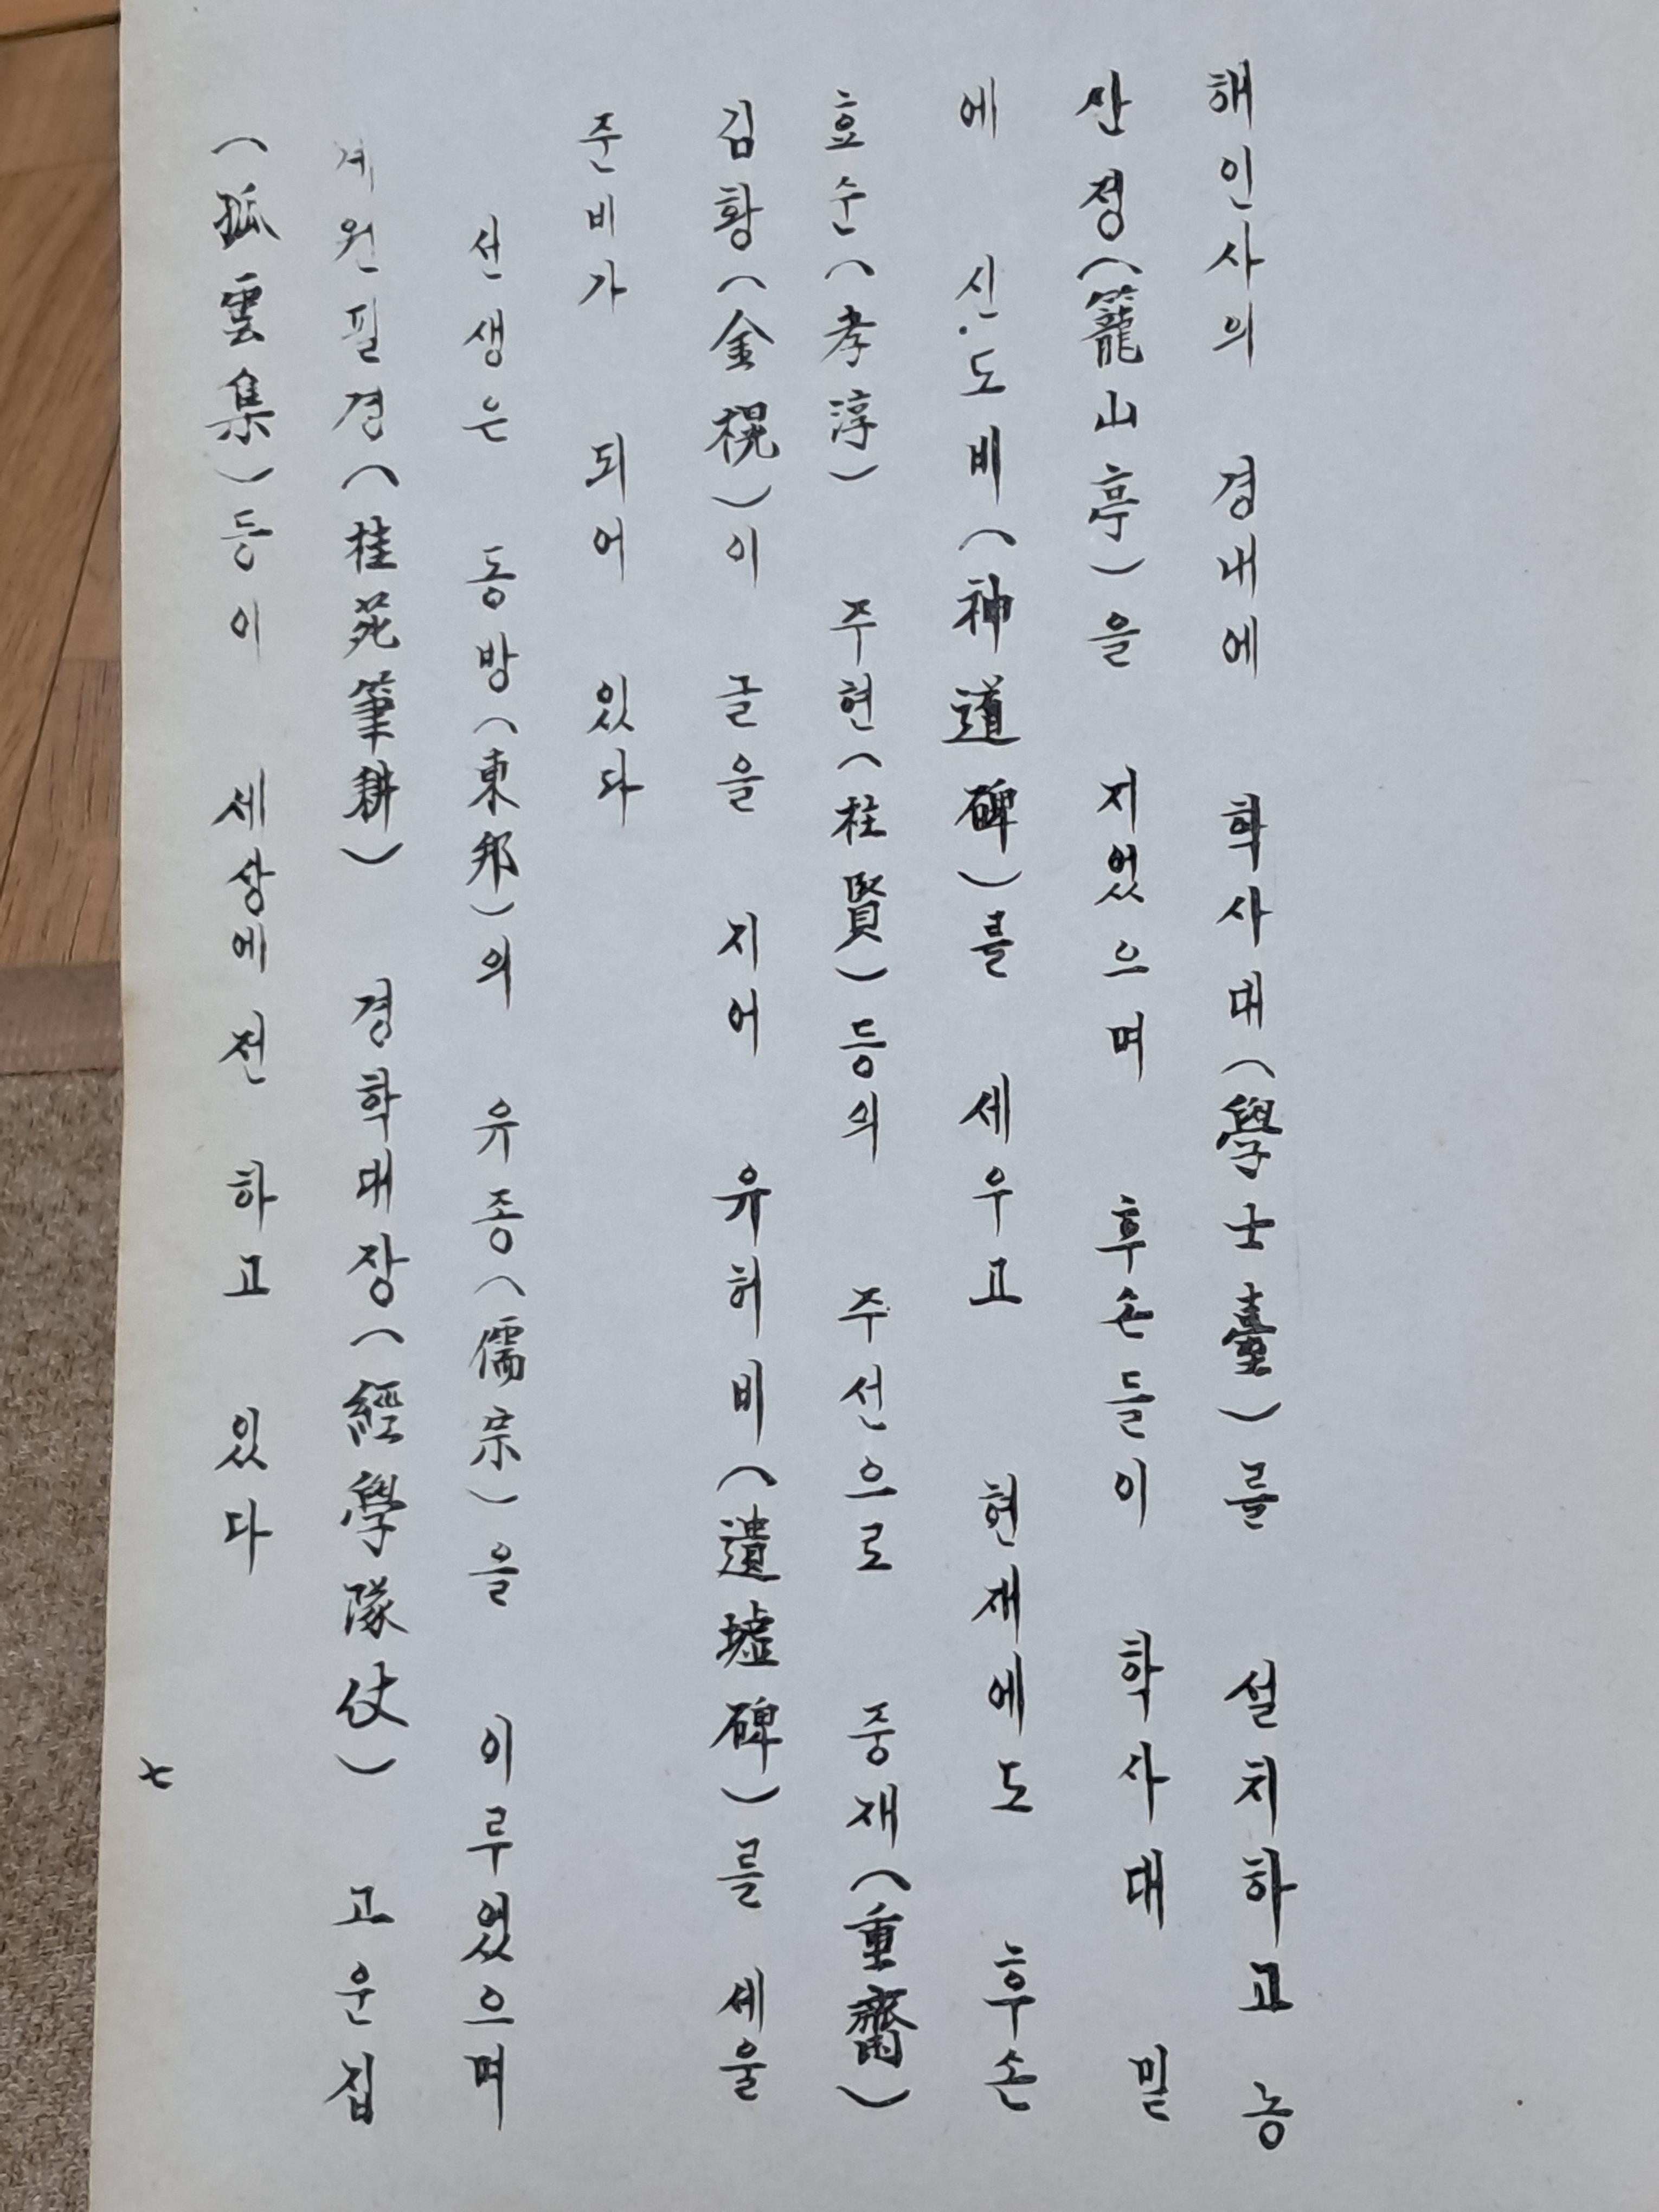 해인사의 경내에 학사대(學士臺)를 설치하고 농
산정(籠山亭)을 지었으며 후손들이 학사대 밑
에 신도비(神道碑)를 세우고 현재에도 후손
효순(孝淳) 주현(柱賢)등의 주선으로 중재(重齋)
김황(金榥)이 글을 지어 유허비(遺墟碑)를 세울
준비가 되어 있다
선생은 동방(東邦)의 유종(儒宗)을 이루었으며
계원필경(桂苑筆耕) 경학대장(經學隊仗) 고운집
(孤雲集)등이 세상에 전하고 있다
七